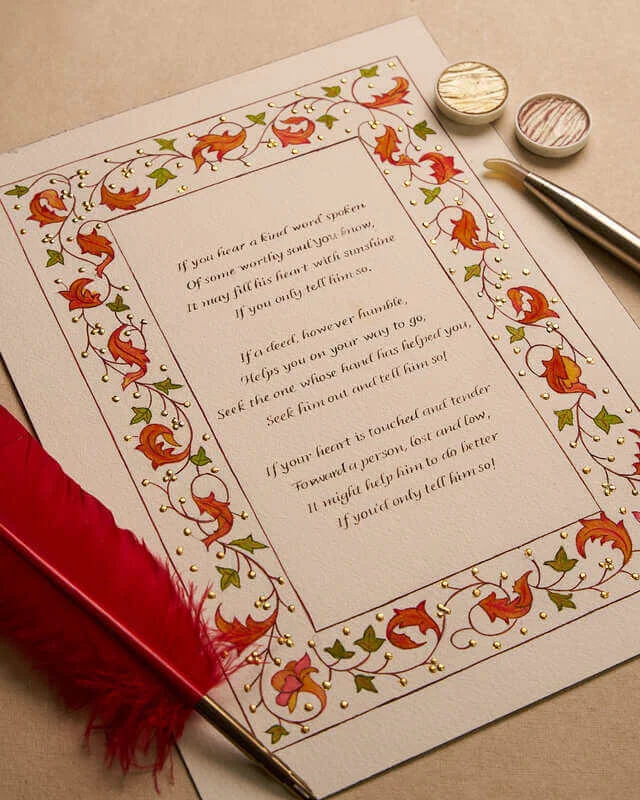 If you hear a kind word spoken
Of some worthy soul you know,
It may fill his heart with sunshine
If you only tell him so.
If a deed, however humble,
Helps you on your way to go,
Seek the one, whose hand has helped you,
Seek him out and tell him so!
If your heart is touched and tender
Toward a person, lost and low,
It might help him to do better
If you'd only tell him so!